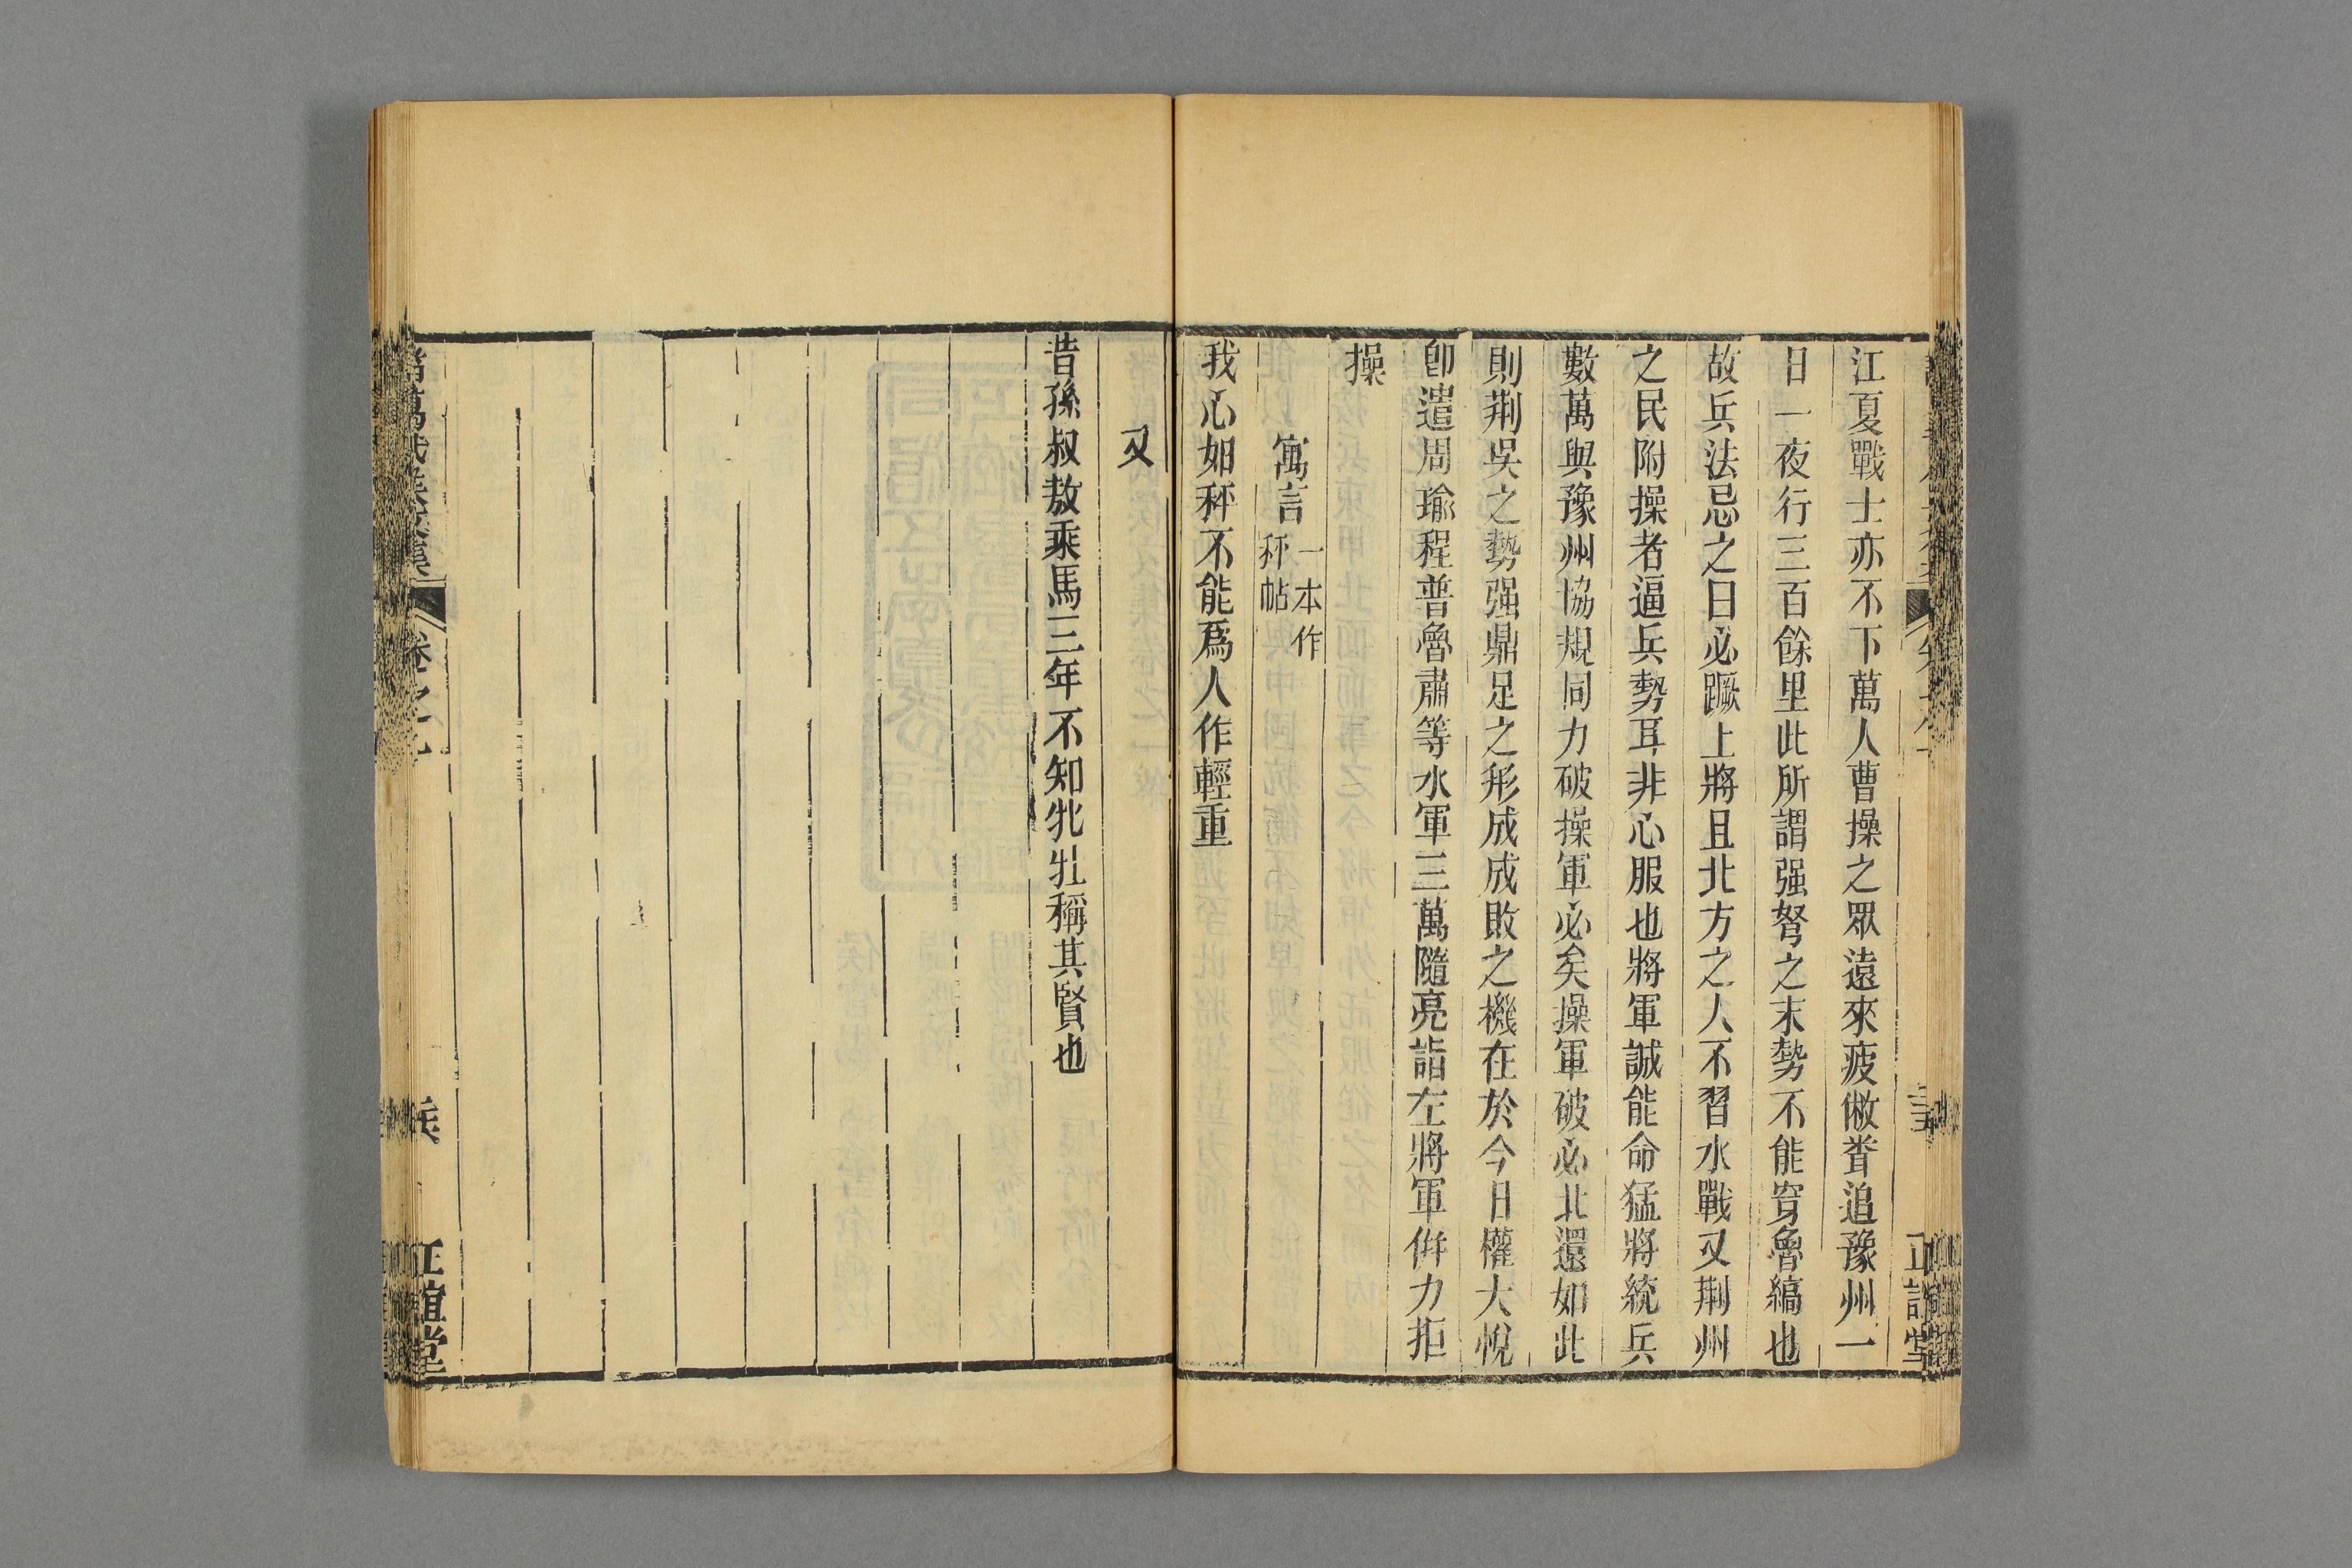 江夏戰士亦不下萬人曹操之眾遠來疲倣聞追豫州一
日一夜行三百餘里此所謂强弩之末勢不能穿魯縞也
故兵法忌之曰必蹶上將且北方之人不習水戰又荆州
之民附操者逼兵勢耳非心服也將軍誠能命猛將統兵
數萬與豫州協規同力破操軍必矣操軍破必北還如此
則荆吳之勢强鼎足之形成成敗之機在於今日權大悅
卽遣周瑜程普魯肅等水軍三萬隨亮詣左將軍併力拒
操
寓言 一本作秤帖
我心如秤不能爲人作輕重
又
昔孫叔敖乘馬三年不知牝牡稱其賢也
卷之
正誼堂